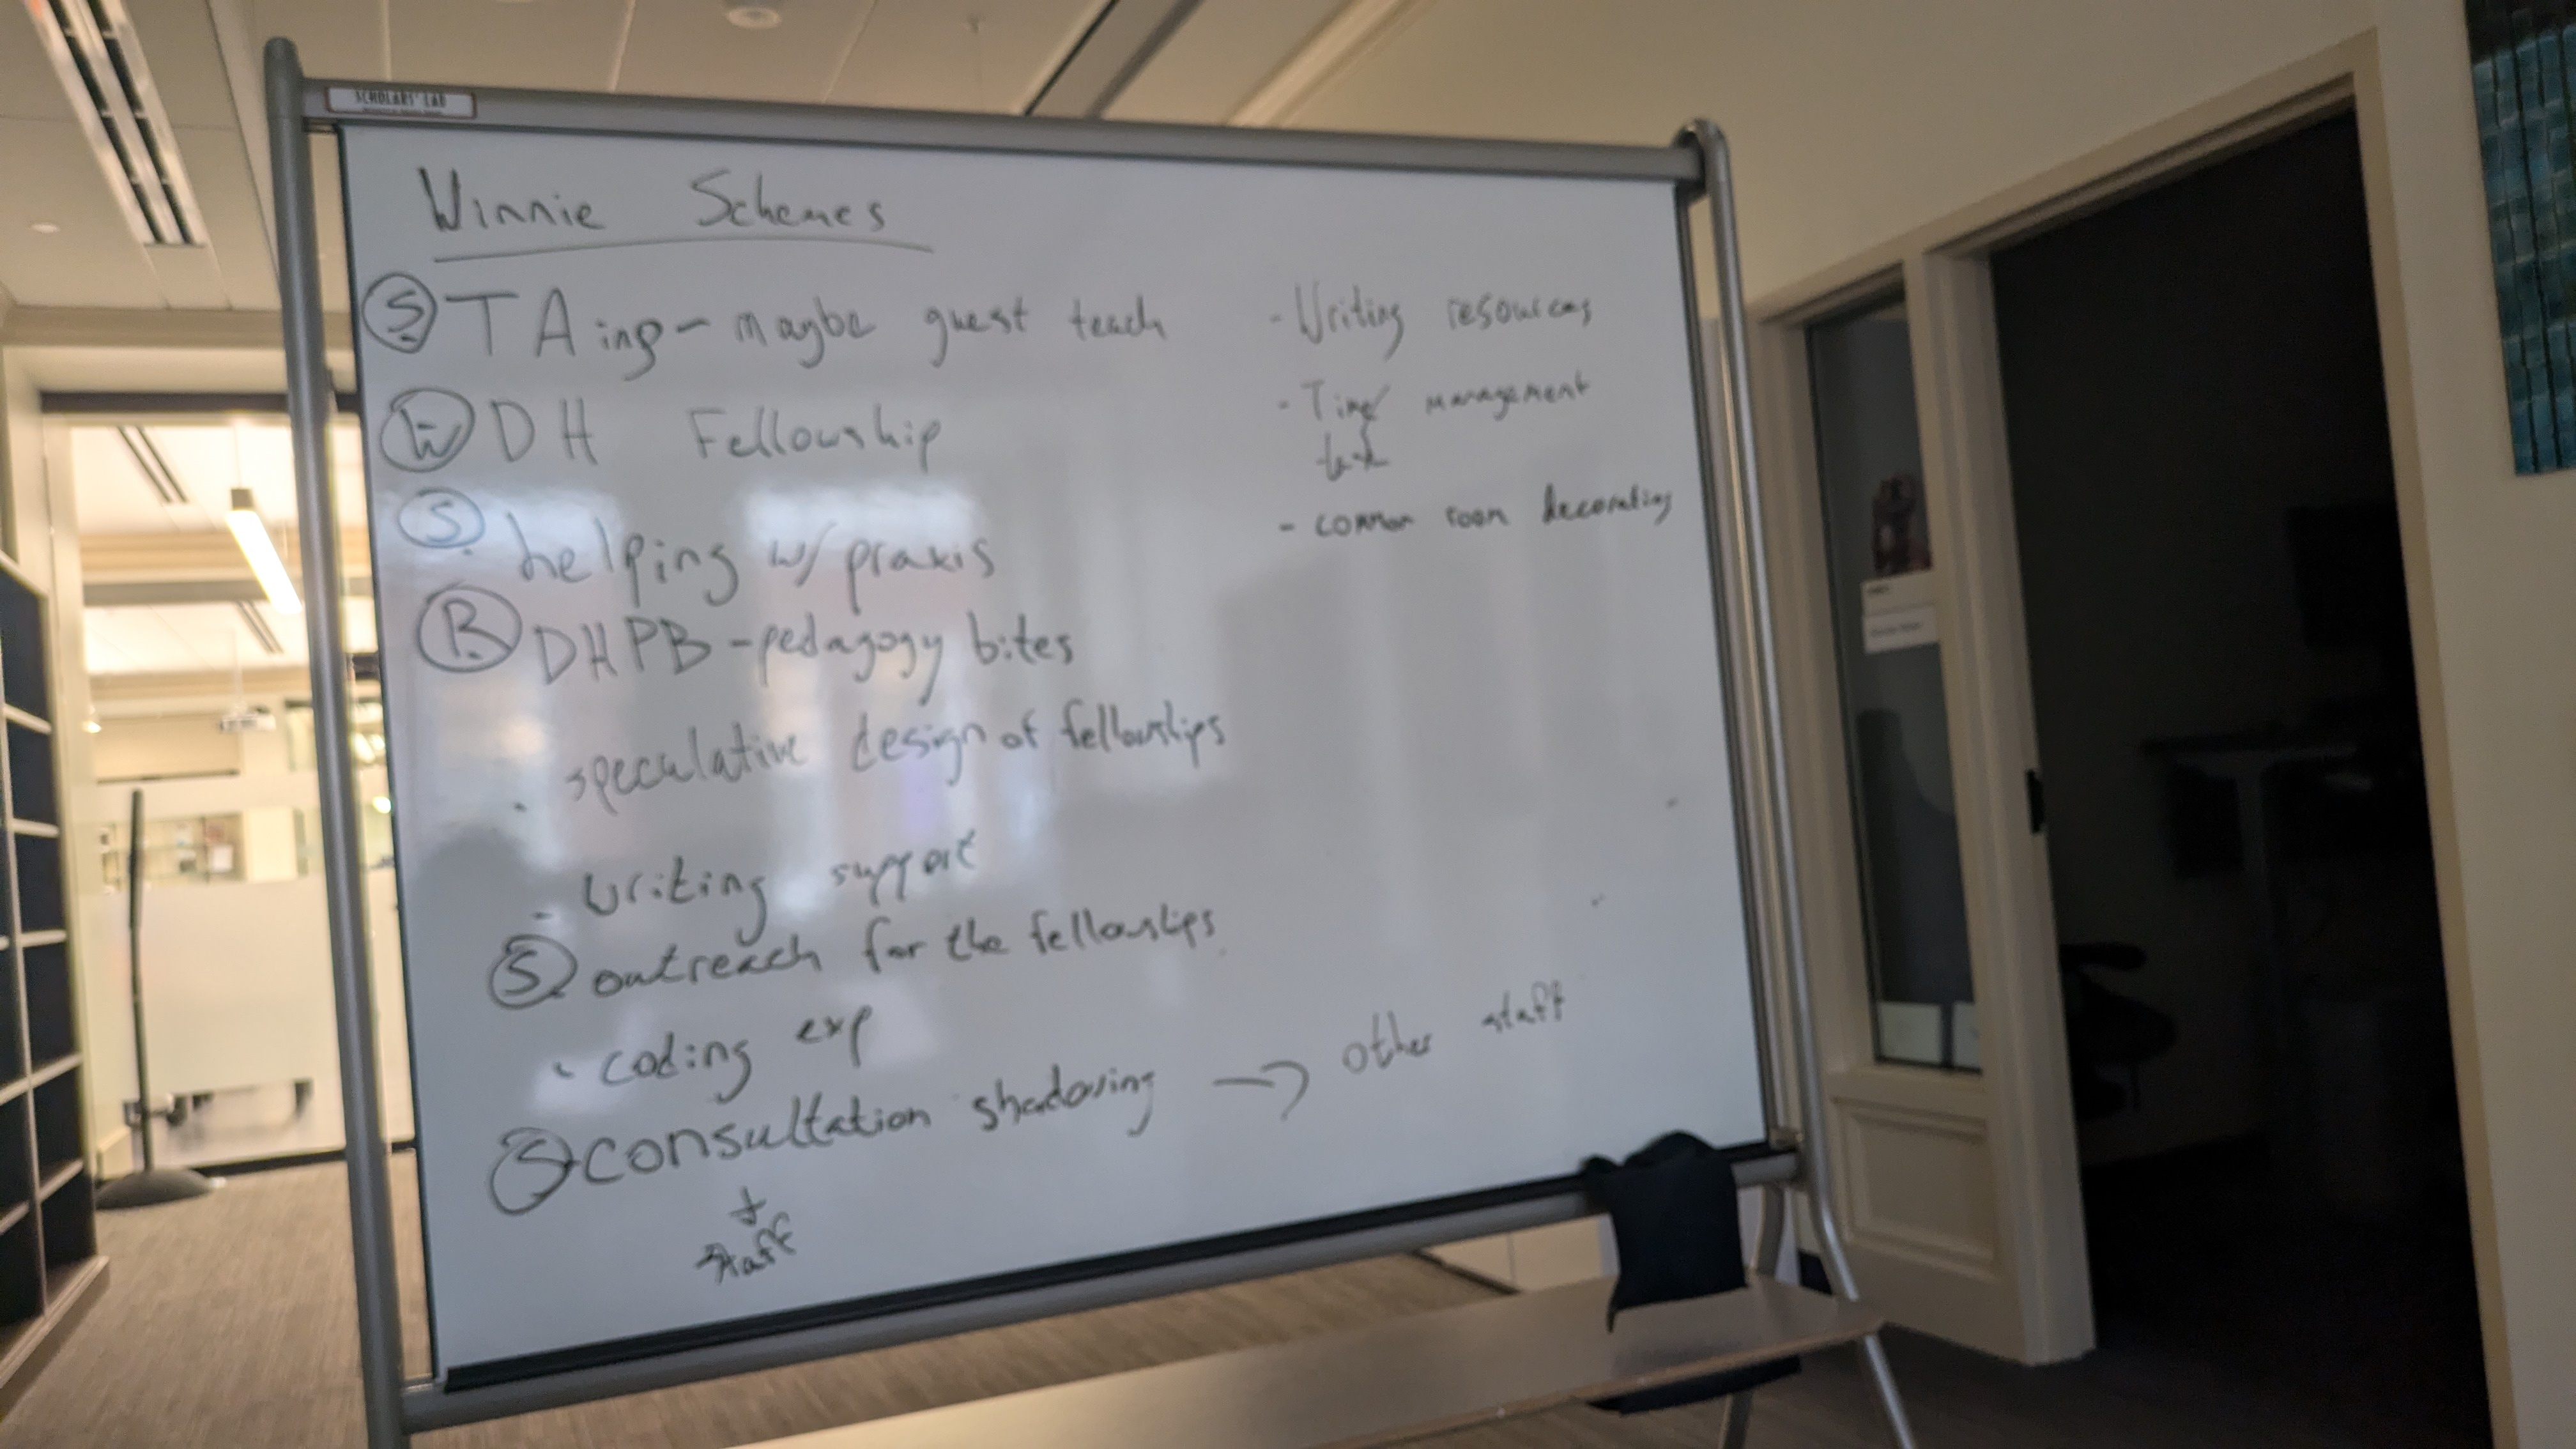 SCHOLARS' LAB
Winnie Schemes
S TAing - maybe guest teach
W DH Fellowship
S helping w/ praxis
R DHPB - pedagogy bites
· speculative design of fellowships
- writing support
S outreach for the fellowships
- coding exp
S consultation shadowing → other staff
+
staff
- Writing resources
- Time/ management
task
- common room decorating